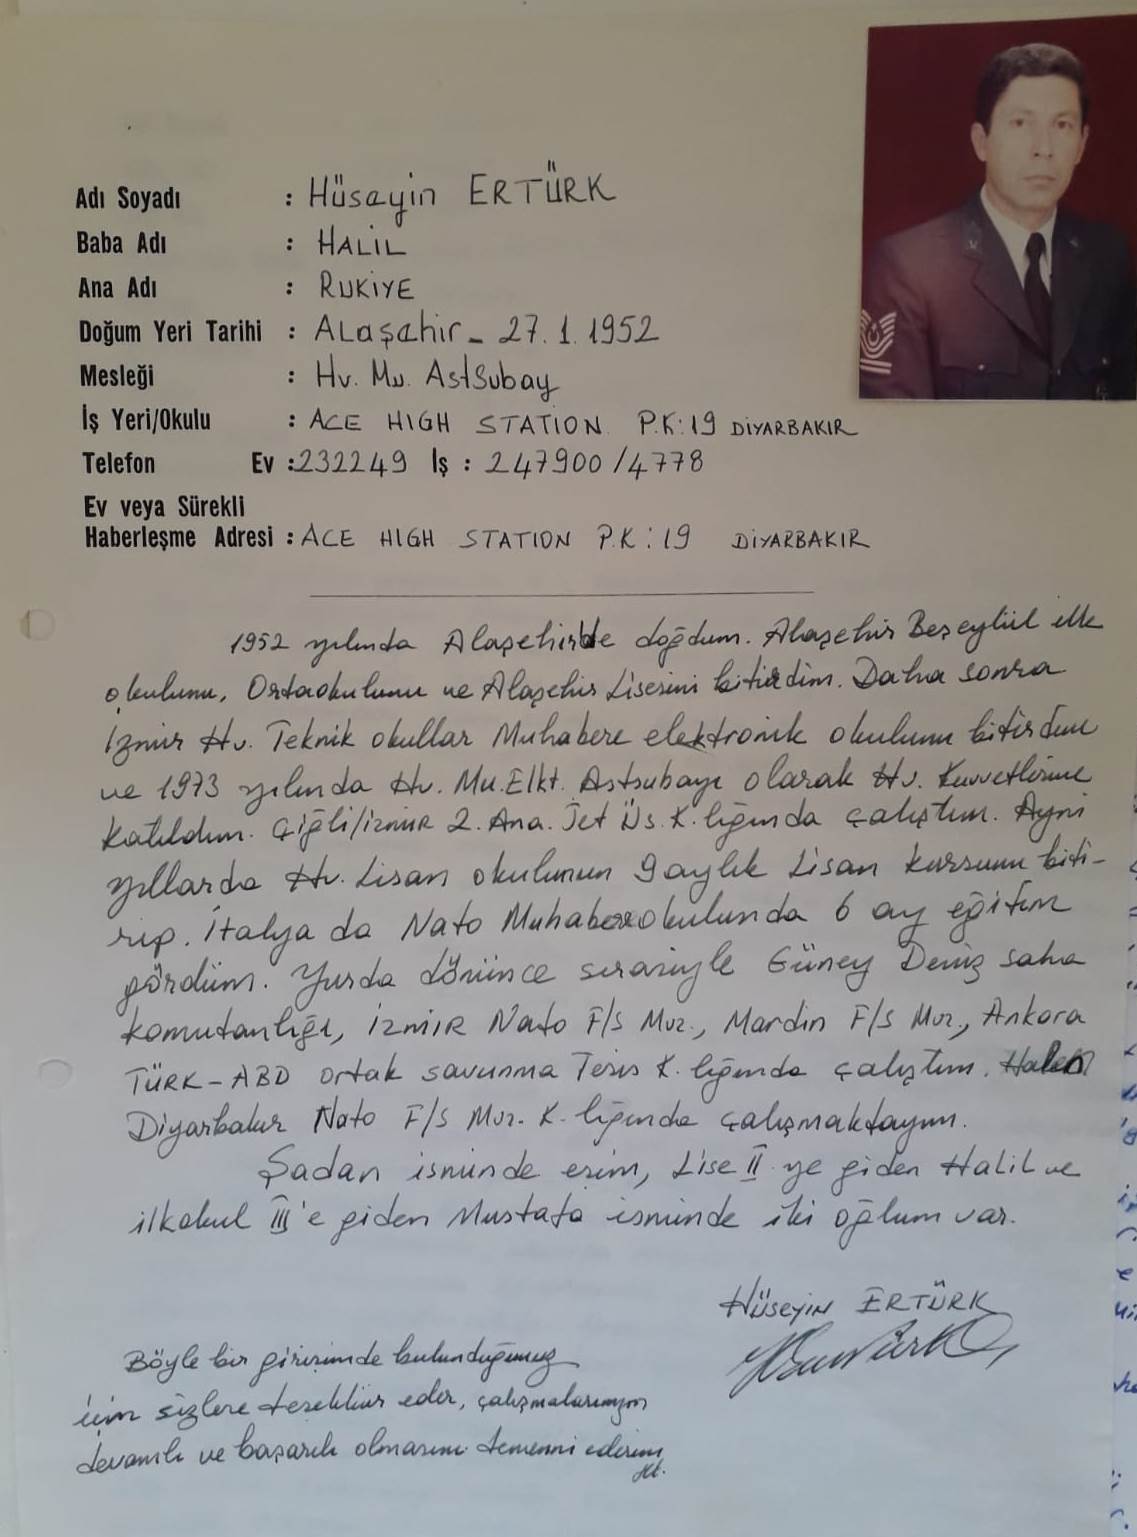 Adı Soyadı : Hüseyin ERTÜRK
Baba Adı : HALİL
Ana Adı : RUKİYE
Doğum Yeri Tarihi : ALaşehir - 27.1.1952
Mesleği : Hv. Mu. AstSubay
İş Yeri/Okulu : ACE HIGH STATION P.K:19 DİYARBAKIR
Telefon Ev :232249 İş : 247900/4778
Ev veya Sürekli
Haberleşme Adresi : ACE HIGH STATION P.K:19 DİYARBAKIR
1952 yılında Alaşehirde doğdum. Alaşehir Beşeylül ilk
okulunu, Ortaokulunu ve Alaşehir Lisesini bitirdim. Daha sonra
İzmir Hv. Teknik okullar Muhabere elektronik okulunu bitirdim
ve 1973 yılında Hv. Mu. Elkt. Astsubayı olarak Hv. Kuvvetlerine
katıldım. Çiğli/İZMİR 2. Ana. Jet Üs. K.lığında çalıştım. Ayni
yıllarda Hv. Lisan okulunun 9 aylık Lisan kursunu biti-
rip. İtalya da Nato Muhabere okulunda 6 ay eğitim
gördüm. Yurda dönünce sırasıyle Güney Deniz saha
komutanlığı, İZMİR Nato F/S Mrz., Mardin F/S Mrz., Ankara
TÜRK-ABD ortak savunma Tesis K.lığında çalıştım. Halen
Diyarbakır Nato F/S Mrz. K.lığında çalışmaktayım.
Şadan isminde eşim, Lise II ye giden Halil ve
ilkokul III'e giden Mustafa isminde iki oğlum var.
Hüseyin ERTÜRK
Böyle bir girişimde bulunduğunuz
için sizlere teşekkür eder, çalışmalarınızın
devamlı ve başarılı olmasını temenni ederim